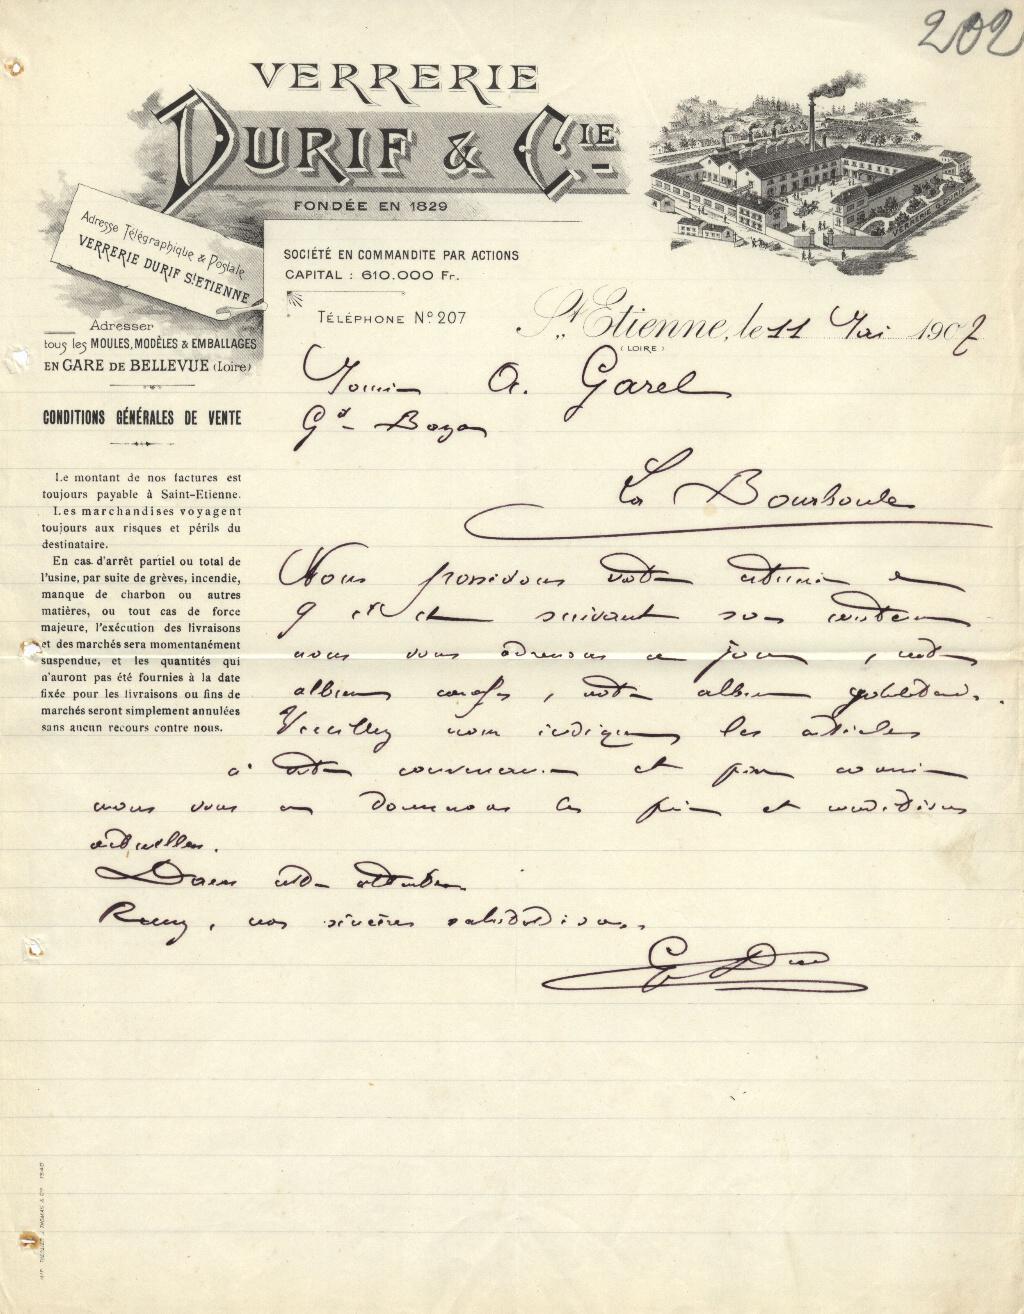 202
VERRERIE
DURIF & CIE
FONDÉE EN 1829
Adresse Télégraphique & Postale
VERRERIE DURIF ST ETIENNE
SOCIÉTÉ EN COMMANDITE PAR ACTIONS
CAPITAL : 610.000 Fr.
TÉLÉPHONE No 207
Adresser
tous les MOULES, MODÈLES & EMBALLAGES
EN GARE DE BELLEVUE (Loire)
St Etienne, le 11 Mai 1907
(LOIRE)
A. Garel
La Bourboule
CONDITIONS GÉNÉRALES DE VENTE
Le montant de nos factures est
toujours payable à Saint-Etienne.
Les marchandises voyagent
toujours aux risques et périls du
destinataire.
En cas d'arrêt partiel ou total de
l'usine, par suite de grèves, incendie,
manque de charbon ou autres
matières, ou tout cas de force
majeure, l'exécution des livraisons
et des marchés sera momentanément
suspendue, et les quantités qui
n'auront pas été fournies à la date
fixée pour les livraisons ou fins de
marchés seront simplement annulées
sans aucun recours contre nous.
Nous
9 ct et suivant son
nous vous adressons ce jour,
album notre album
Veuillez nous indiquer les articles
à votre convenance et par
nous vous en donnerons les prix et conditions
actuelles.
Dans cette attente
Recevez, nos sincères salutations.